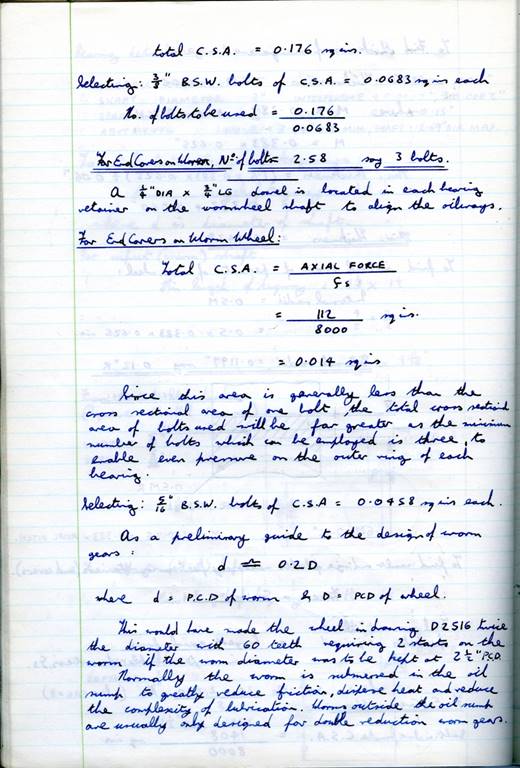 total C.S.A. = 0.176 sq ins.
Selecting: 3/8" B.S.W. bolts of C.S.A. = 0.0683 sq ins each
No. of bolts to be used = 0.176
0.0683
For End Covers on Worm, No of bolts = 2.58 say 3 bolts.
A 1/4" DIA x 3/4" LG dowel is located in each bearing
retainer on the wormwheel shaft to align the oilways.
For End Covers on Worm Wheel:
Total C.S.A. = AXIAL FORCE
fs
= 112 sq ins.
8000
= 0.014 sq ins
Since this area is generally less than the
cross sectional area of one bolt, the total cross sectional
area of bolts used will be far greater as the minimum
number of bolts which can be employed is three, to
enable even pressure on the outer ring of each
bearing.
Selecting: 5/16" B.S.W. bolts of C.S.A = 0.0458 sq ins each.
As a preliminary guide to the design of worm
gears:
d ≏ 0.2D
where d = P.C.D of worm & D = PCD of wheel.
This would have made the wheel in drawing D2516 twice
the diameter with 60 teeth requiring 2 starts on the
worm if the worm diameter was to be kept at 2 1/2" P.C.D.
Normally the worm is submerged in the oil
sump to greatly reduce friction, disperse heat and reduce
the complexity of lubrication. Worms outside the oil sump
are usually only designed for double reduction worm gears.